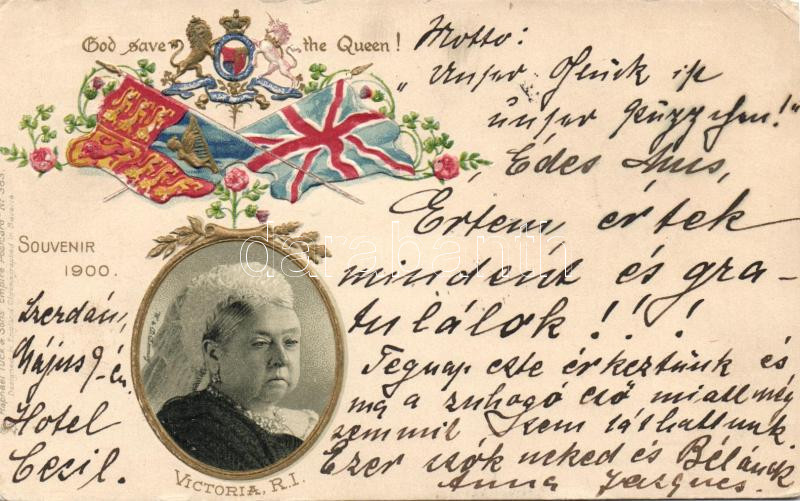 God save the Queen!
SOUVENIR
1900.
VICTORIA, R.I.
Raphael Tuck & Sons' "Empire" Postcard Nº 383.
Motto:
"Unser Glück ist
unser Püppchen!"
Édes Mus,
Értem, értek
mindent és gra-
tulálok!!!
Tegnap este érkeztünk és
ma a zuhogó eső miatt még
semmit sem láthattunk.
Ezer csók neked és Bélának
Anna Jacques.
Szerdán,
Május 9-én
Hotel
Cecil.
darabanth